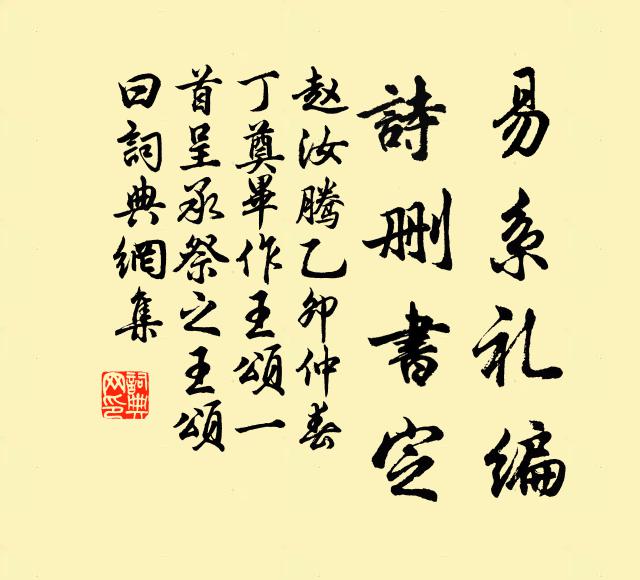 易系礼编
詩删書定
赵汝腾乙卯仲春
丁奠畢作王頌一
首呈承祭之王頌
曰詞典網集
詞典
网印